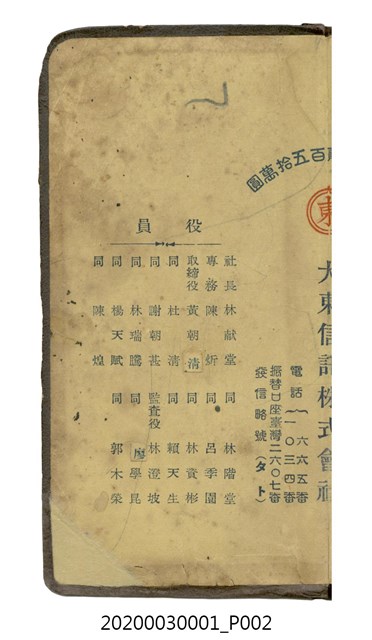 百五拾萬圓
東
大東信託株式會社
電話 六六五番
一〇三四番
振替口座臺灣二六〇七番
發信略號(タト)
役員
社長 林献堂 同 林階堂
專務 陳炘 同 呂季園
取締役 黃朝清 同 林資彬
同 杜清 同 賴天生
同 謝朝甚 監査役 林澄坡
同 林瑞騰 同 廖學昆
同 楊天賦 同 郭木榮
同 陳煌
20200030001_P002